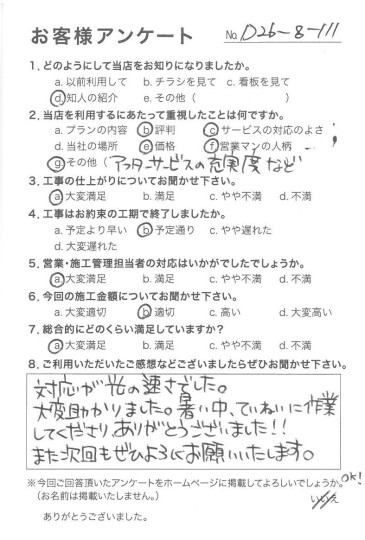 お客様アンケート No. D26-8-111
1. どのようにして当店をお知りになりましたか。
a. 以前利用して b. チラシを見て c. 看板を見て
d. 知人の紹介 e. その他( )
2. 当店を利用するにあたって重視したことは何ですか。
a. プランの内容 b. 評判 c. サービスの対応のよさ
d. 当社の場所 e. 価格 f. 営業マンの人柄
g. その他(アフターサービスの充実度など
3. 工事の仕上がりについてお聞かせ下さい。
a. 大変満足 b. 満足 c. やや不満 d. 不満
4. 工事はお約束の工期で終了しましたか。
a. 予定より早い b. 予定通り c. やや遅れた
d. 大変遅れた
5. 営業・施工管理担当者の対応はいかがでしたでしょうか。
a. 大変満足 b. 満足 c. やや不満 d. 不満
6. 今回の施工金額についてお聞かせ下さい。
a. 大変適切 b. 適切 c. 高い d. 大変高い
7. 総合的にどのくらい満足していますか?
a. 大変満足 b. 満足 c. やや不満 d. 不満
8. ご利用いただいたご感想などございましたらぜひお聞かせ下さい。
対応が光の速さでした。
大変助かりました。暑い中、ていねいに作業
してくださり、ありがとうございました!!
また次回もぜひよろしくお願いいたします。
※今回ご回答頂いたアンケートをホームページに掲載してよろしいでしょうか。OK!
(お名前は掲載いたしません。) いいえ
ありがとうございました。